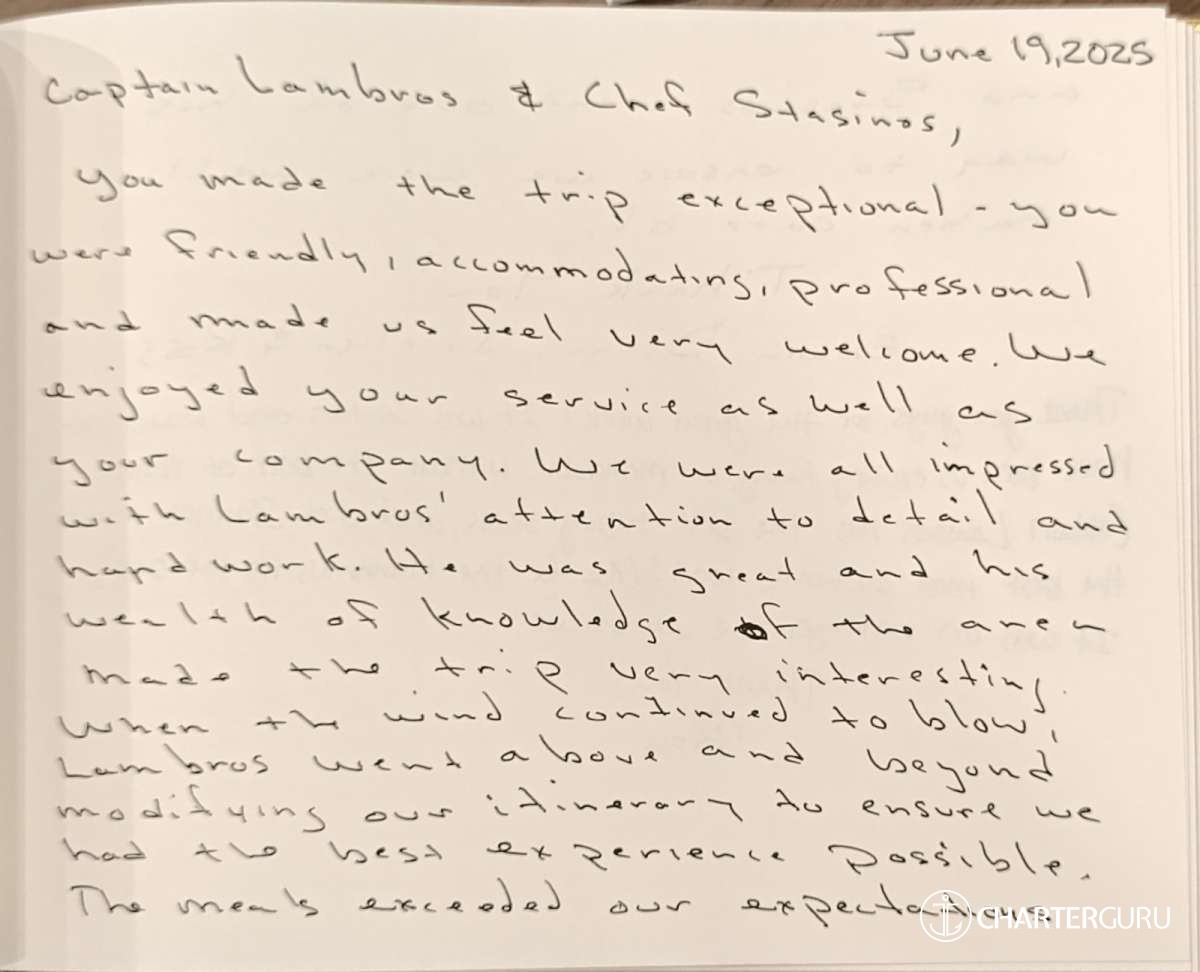 June 19, 2025
Captain Lambros & Chef Stasinos,
you made the trip exceptional - you
were friendly, accommodating, professional
and made us feel very welcome. We
enjoyed your service as well as
your company. We were all impressed
with Lambros' attention to detail and
hard work. He was great and his
wealth of knowledge of the area
made the trip very interesting.
When the wind continued to blow,
Lambros went above and beyond
modifying our itinerary to ensure we
had the best experience possible.
The meals exceeded our expectations
CHARTERGURU